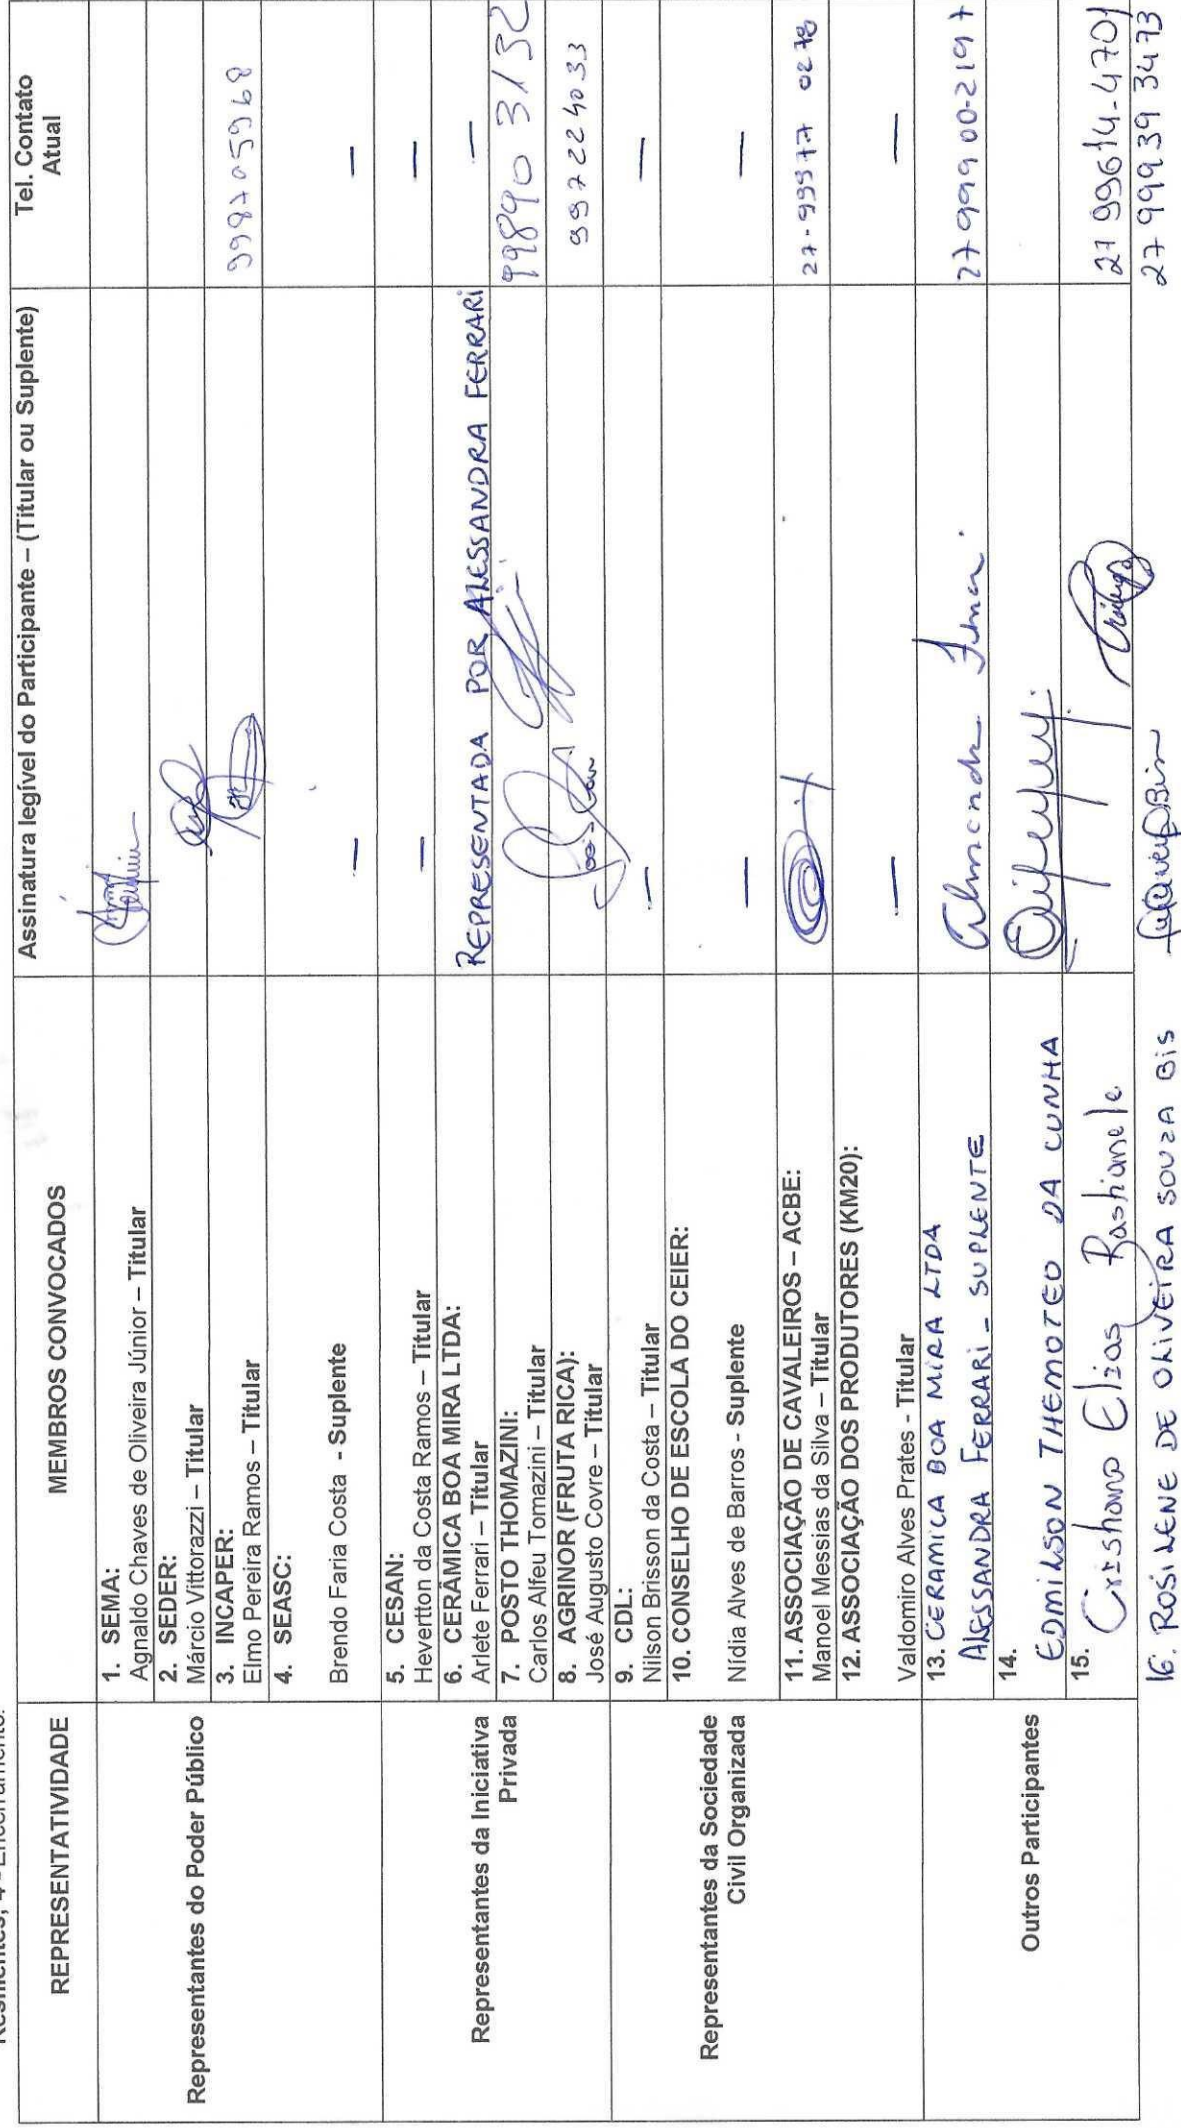 REPRESENTATIVIDADE
MEMBROS CONVOCADOS
Assinatura legível do Participante – (Titular ou Suplente)
Tel. Contato
Atual
Representantes do Poder Público
1. SEMA:
Agnaldo Chaves de Oliveira Júnior – Titular
2. SEDER:
Márcio Vittorazzi – Titular
3. INCAPER:
Elmo Pereira Ramos – Titular
998705968
4. SEASC:
Brendo Faria Costa - Suplente
—
—
Representantes da Iniciativa
Privada
5. CESAN:
Hevertton da Costa Ramos – Titular
—
—
6. CERÂMICA BOA MIRA LTDA:
Arlete Ferrari – Titular
REPRESENTADA POR ALESSANDRA FERRARI
—
7. POSTO THOMAZINI:
Carlos Alfeu Tomazini – Titular
99890 3132
8. AGRINOR (FRUTA RICA):
José Augusto Covre – Titular
997224033
Representantes da Sociedade
Civil Organizada
9. CDL:
Nilson Brisson da Costa – Titular
—
—
10. CONSELHO DE ESCOLA DO CEIER:
Nídia Alves de Barros - Suplente
—
—
11. ASSOCIAÇÃO DE CAVALEIROS – ACBE:
Manoel Messias da Silva – Titular
27-99977 0278
12. ASSOCIAÇÃO DOS PRODUTORES (KM20):
Valdomiro Alves Prates - Titular
—
—
Outros Participantes
13. CERAMICA BOA MIRA LTDA
ALESSANDRA FERRARI - SUPLENTE
27 99900-2197
14.
EDMILSON THEMOTEO DA CUNHA
15.
Cristhano Elias Bastianele
27 99614-4701
16. ROSILENE DE OLIVEIRA SOUZA BIS
27 99939 3473